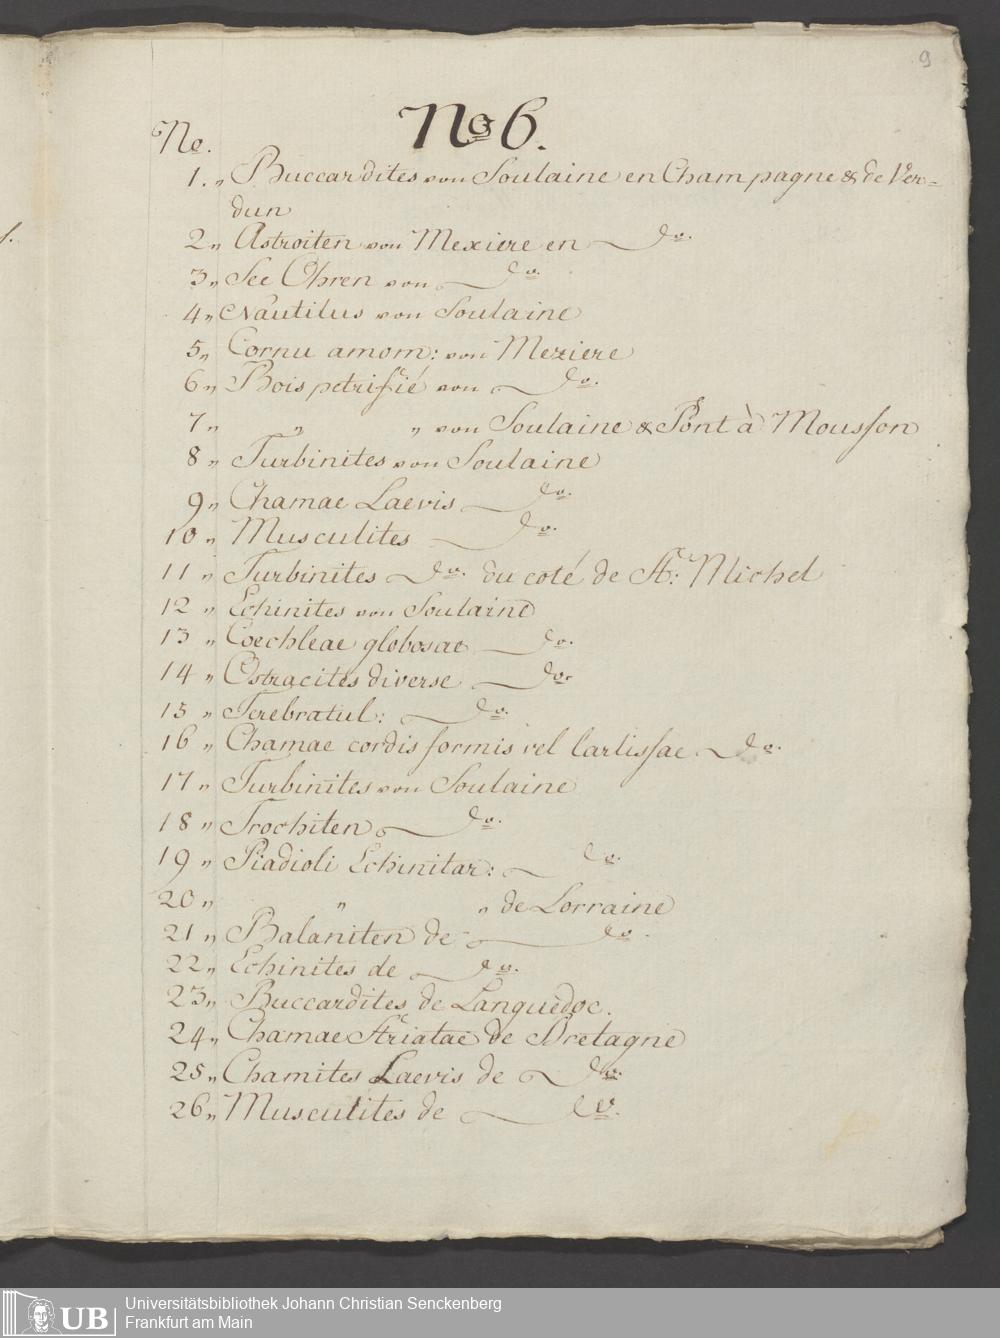 9
No 6.
No.
1. „ Buccardites von Soulaine en Champagne & de Ver=
dun
2 „ Astroiten von Mexiere en do.
3 „ See Ohren von do.
4 „ Nautilus von Soulaine
5 „ Cornu amom: von Meziere
6 „ Bois petrifié von do.
7 „ „ „ von Soulaine & Pont à Mousson
8 „ Turbinites von Soulaine
9 „ Chamae Laevis do.
10 „ Musculites do.
11 „ Turbinites do. du coté de St: Michel
12 „ Echinites von Soulaine
13 „ Coechleae globosae do.
14 „ Ostracites diverse do.
15 „ Terebratul: do.
16 „ Chamae cordis formis vel do.
17 „ Turbinites von Soulaine
18 „ Trochiten do.
19 „ Piadioli Echinitar: do.
20 „ „ „ de Lorraine
21 „ Balaniten de do.
22 „ Echinites de do.
23 „ Buccardites de Languedoc.
24 „ Chamae Striatae de Bretagne
25 „ Chamites Laevis de do.
26 „ Musculites de do.
UB
Universitätsbibliothek Johann Christian Senckenberg
Frankfurt am Main